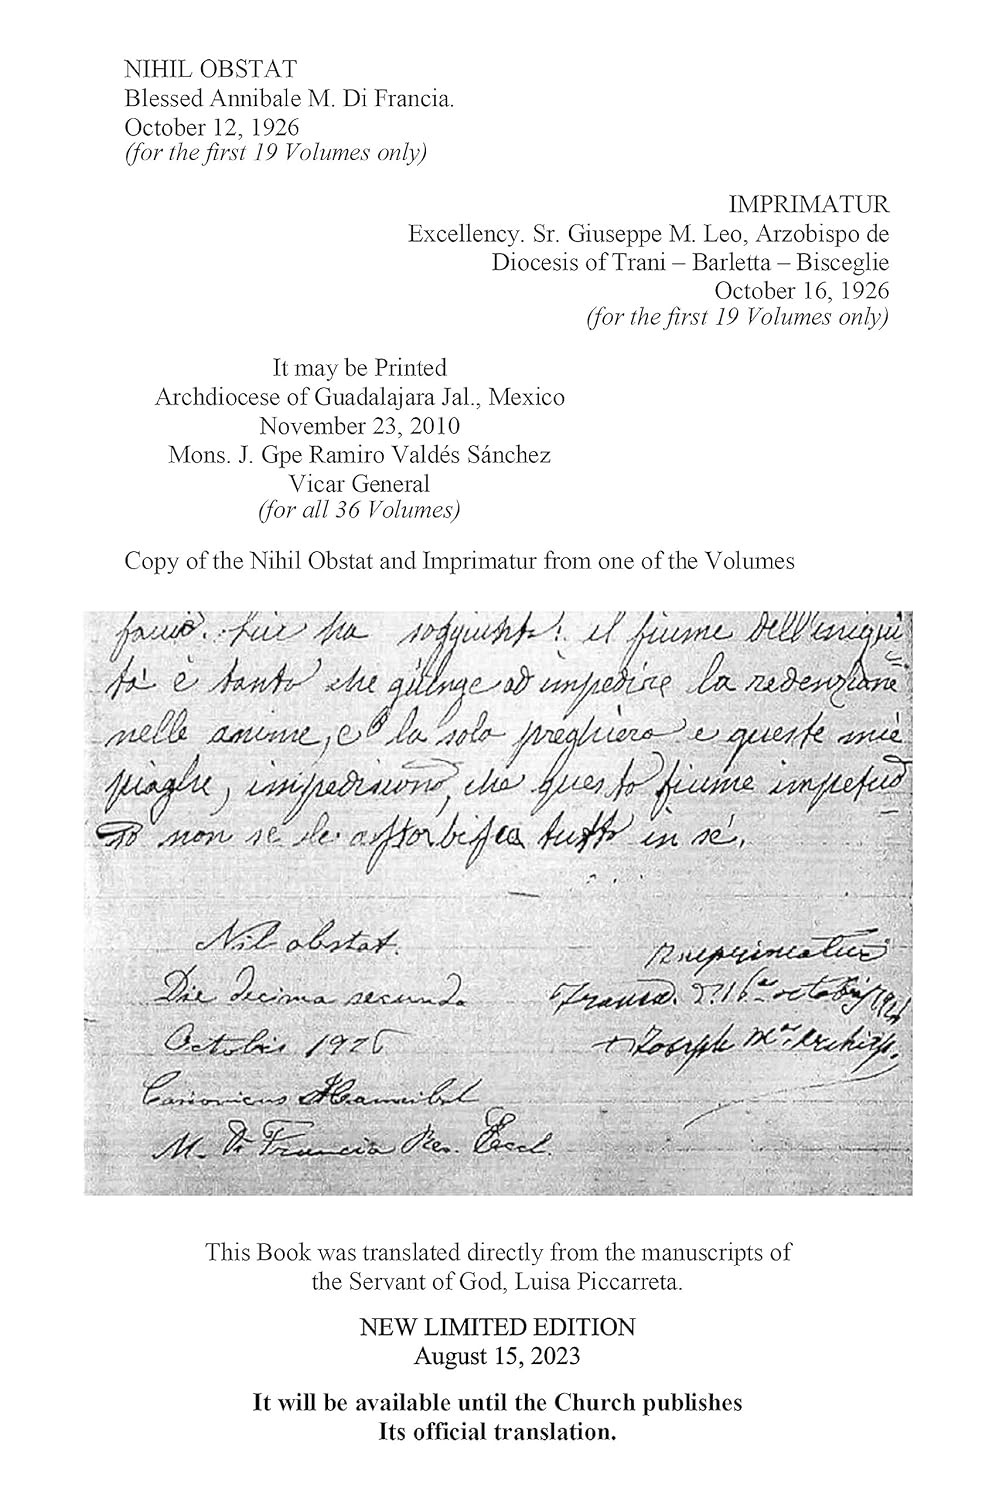 NIHIL OBSTAT
Blessed Annibale M. Di Francia.
October 12, 1926
(for the first 19 Volumes only)
IMPRIMATUR
Excellency. Sr. Giuseppe M. Leo, Arzobispo de
Diocesis of Trani – Barletta – Bisceglie
October 16, 1926
(for the first 19 Volumes only)
It may be Printed
Archdiocese of Guadalajara Jal., Mexico
November 23, 2010
Mons. J. Gpe Ramiro Valdés Sánchez
Vicar General
(for all 36 Volumes)
Copy of the Nihil Obstat and Imprimatur from one of the Volumes
ha il fiume dell'iniqui
tà è tanto che giunge ad impedire la redenzione
nelle anime, e la sola preghiera e queste mie
piaghe, impediscono, che questo fiume impetuo
so non se le assorbisca tutto in sé.
Nil obstat.
Die decima secunda
Octobris 1926
Canonicus
M. Di Francia Rev. Eccl.
Imprimatur
16 octobris
Joseph M. Archiep.
This Book was translated directly from the manuscripts of
the Servant of God, Luisa Piccarreta.
NEW LIMITED EDITION
August 15, 2023
It will be available until the Church publishes
Its official translation.